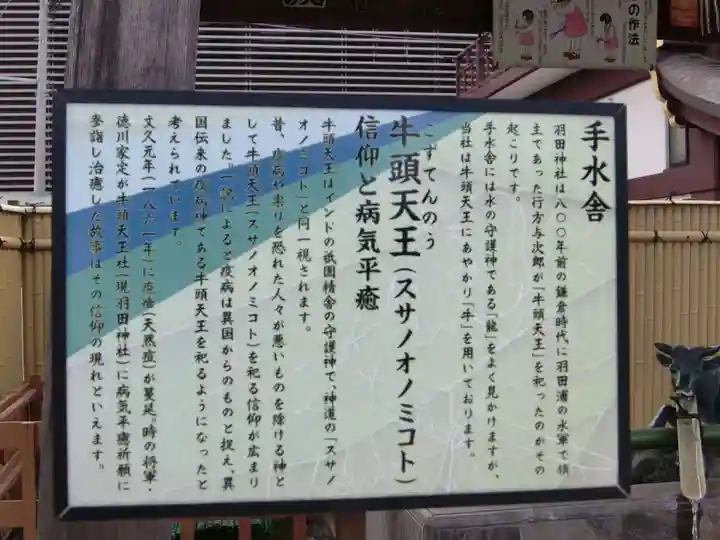 の作法
手水舎
羽田神社は八〇〇年前の鎌倉時代に羽田浦の水軍で領
主であった行方与次郎が「牛頭天王」を祀ったのがその
起こりです。
手水舎には水の守護神である「龍」をよく見かけますが、
当社は牛頭天王にあやかり「牛」を用いております。
こずてんのう
牛頭天王(スサノオノミコト)
信仰と病気平癒
牛頭天王はインドの祇園精舎の守護神で、神道の「スサノ
オノミコト」と同一視されます。
昔、疫病や祟りを恐れた人々が悪いものを除ける神と
して牛頭天王(スサノオノミコト)を祀る信仰が広まり
ました。一説によると疫病は異国からのものと捉え、異
国伝来の疫病神である牛頭天王を祀るようになったと
考えられています。
文久元年(一八六一年)に疱瘡(天然痘)が蔓延。時の将軍・
徳川家定が牛頭天王社(現羽田神社)に病気平癒祈願に
参詣し治癒した故事はその信仰の現れといえます。